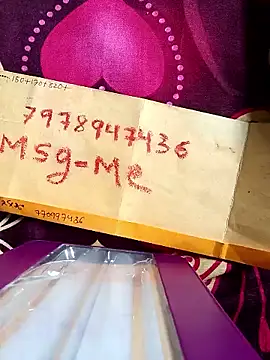 7978947436
Msg-Me
770997436